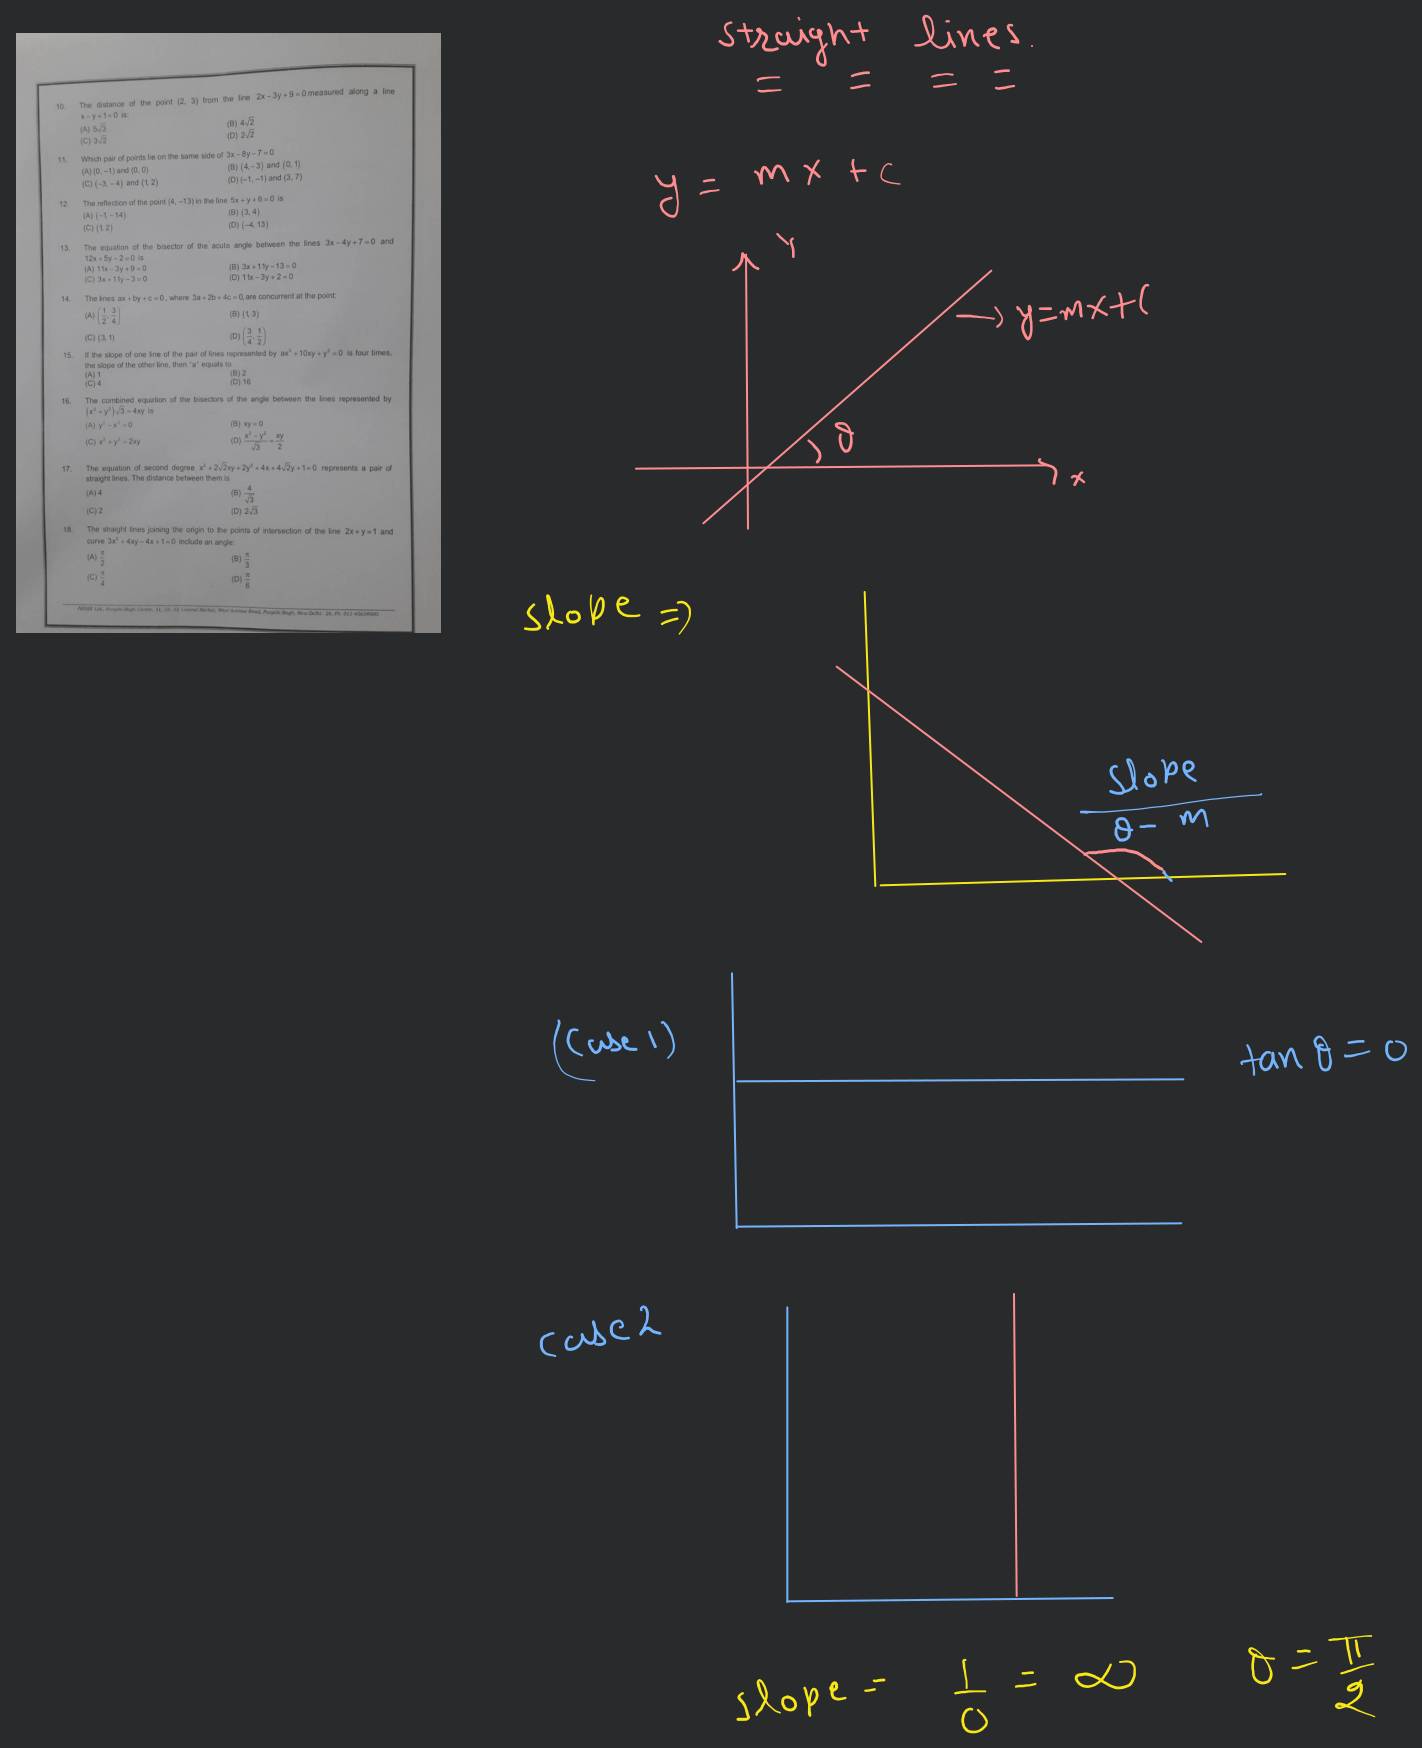 10. The distance of the point (2, 3) from the line 2x − 3y + 9 = 0 measured along a line
x − y + 1 = 0 is:
(A) 5√2 (B) 4√2
(C) 3√2 (D) 2√2
11. Which pair of points lie on the same side of 3x − 8y − 7 = 0
(A) (0, −1) and (0, 0) (B) (4, −3) and (0, 1)
(C) (−3, −4) and (1, 2) (D) (−1, −1) and (3, 7)
12. The reflection of the point (4, −13) in the line 5x + y + 6 = 0 is
(A) (−1, −14) (B) (3, 4)
(C) (1, 2) (D) (−4, 13)
13. The equation of the bisector of the acute angle between the lines 3x − 4y + 7 = 0 and
12x + 5y − 2 = 0 is
(A) 11x − 3y + 9 = 0 (B) 3x + 11y − 13 = 0
(C) 3x + 11y − 3 = 0 (D) 11x − 3y + 2 = 0
14. The lines ax + by + c = 0, where 3a + 2b + 4c = 0, are concurrent at the point:
(A) (1/2, 3/4) (B) (1, 3)
(C) (3, 1) (D) (3/4, 1/2)
15. If the slope of one line of the pair of lines represented by ax² + 10xy + y² = 0 is four times,
the slope of the other line, then "a" equals to
(A) 1 (B) 2
(C) 4 (D) 16
16. The combined equation of the bisectors of the angle between the lines represented by
(x² + y²)√3 = 4xy is
(A) y² − x² = 0 (B) xy = 0
(C) x² + y² = 2xy (D) (x² − y²)/√3 = xy/2
17. The equation of second degree x² + 2√2xy + 2y² + 4x + 4√2y + 1 = 0 represents a pair of
straight lines. The distance between them is
(A) 4 (B) 4/√3
(C) 2 (D) 2√3
18. The straight lines joining the origin to the points of intersection of the line 2x + y = 1 and
curve 3x² + 4xy − 4x + 1 = 0 include an angle:
(A) π/2 (B) π/3
(C) π/4 (D) π/6
straight lines.
= = = =
y = mx + c
Y
→ y=mx+c
θ
x
slope ⇒
slope
θ - m
(case 1)
tan θ = 0
case 2
slope = 1/0 = ∞ θ = π/2